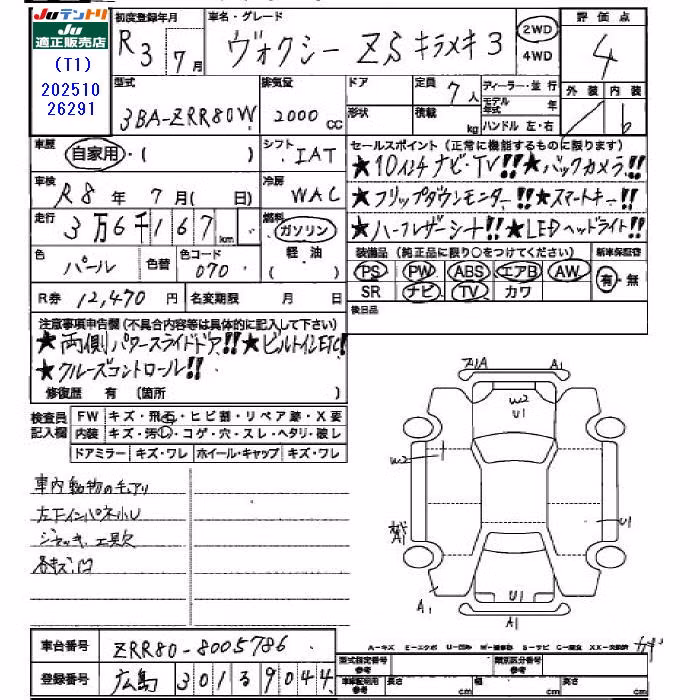 Juテントリ
Ju
適正販売店
(T1)
202510
26291
初度登録年月
R3 7月
車名・グレード
ヴォクシー ZS キラメキ3
2WD
4WD
評価点
4
外装 内装
6
型式
3BA-ZRR80W
排気量
2000 CC
ドア
形状
定員 7人
積載 kg
ディーラー・並行
モデル年式 年
ハンドル 左・右
車歴
自家用・( )
シフト
IAT
セールスポイント(正常に機能するものに限ります)
★10インチナビ・TV!!★バックカメラ!!
★フリップダウンモニター!!★スマートキー!!
★ハーフレザーシート!!★LEDヘッドライト!!
車検
R8年 7月( 日)
冷房
WAC
走行
3万6千167km
燃料
ガソリン
軽・油
( )
色
パール
色替
色コード
070
R券 12,470 円
名変期限 月 日
装備品(純正品に限り○をつけてください)
新車保証書
PS PW ABS エアB AW
SR ナビ TV カワ
有・無
後日品
注意事項申告欄(不具合内容等は具体的に記入して下さい)
★両側パワースライドドア!!★ビルトインETC!
★クルーズコントロール!!
修復歴 有 [箇所 ]
検査員
記入欄
FW キズ・飛石・ヒビ割・リペア跡・X要
内装 キズ・汚し・コゲ・穴・スレ・ヘタリ・破レ
ドアミラー キズ・ワレ ホイール・キャップ キズ・ワレ
車内動物の毛アリ
左下インパネ小U
ジャッキ、工具欠
各キズ凹
A1
W2
U1
W2
A1
U1
U1
A1
A1
A-キズ E-エクボ U-凹み W-補修跡 S-サビ C-腐食 XX-交換済
車台番号 ZRR80-8005786
登録番号 広島 301 3 9044
型式指定番号
参考
類別区分番号
参考
車庫証明用
参考
長さ cm
幅 cm
高さ cm